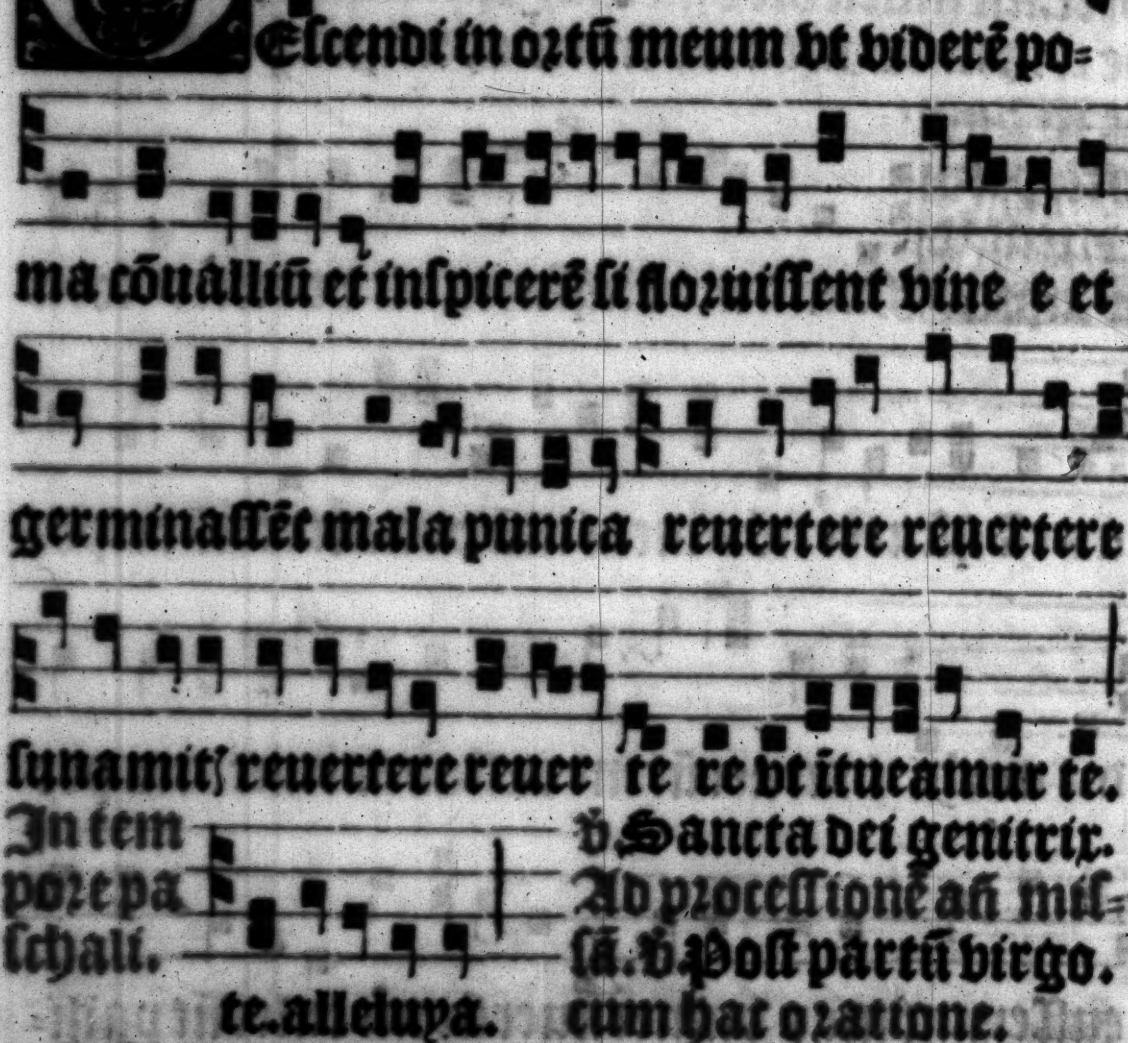 Escendi in ortū meum vt viderē po-
ma cōualliū et inspicerē si floruissent vine e et
germinassēt mala punica reuertere reuertere
sunamitꝭ reuertere reuer te re vt ītueamur te.
In tem
pore pa
schali.
te. alleluya.
℣ Sancta dei genitrix.
Ad processionē añ mis-
sā. ℣. Post partū virgo.
cum hac oratione.